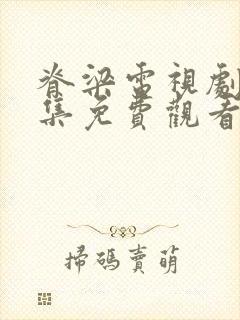 脊梁電視劇
集免費觀看
掃碼賣萌